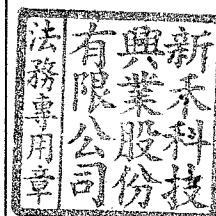 新禾科技
興業股份
有限公司
法務專用章